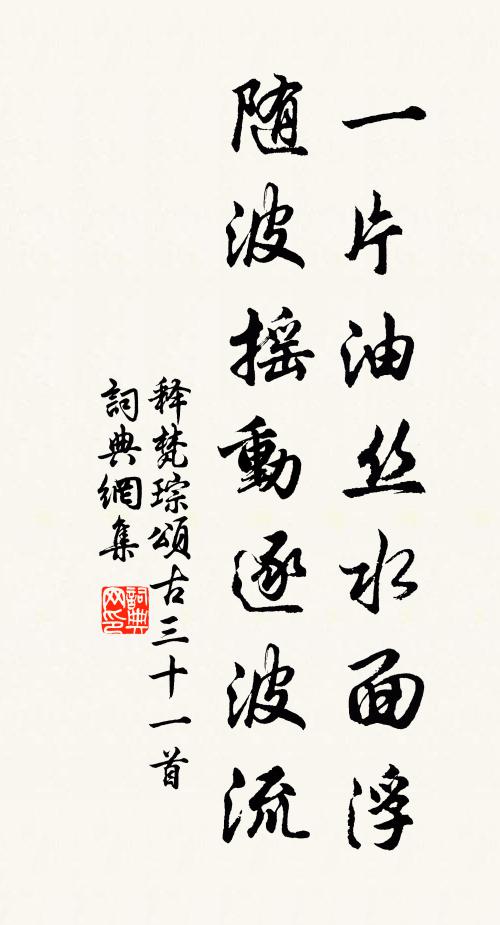 一片油丝水面浮
随波摇動逐波流
释梵琮頌古三十一首
詞典網集
詞典网印